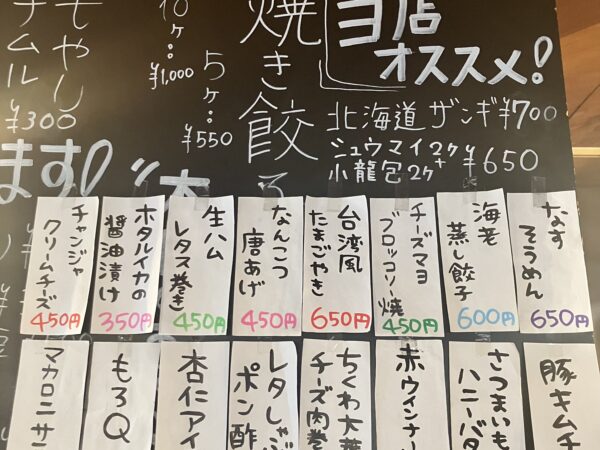 オススメ!
北海道 ザンギ ¥700
シュウマイ2ケ+
小龍包2ケ
¥650
焼き餃子
10ケ:
¥1,000
5ケ:
¥550
もやし
ナムル
¥300
ます!
なす
そうめん
650円
海老
蒸し餃子
600円
チーズマヨ
ブロッコリー焼
450円
台湾風
たまごやき
650円
なんこつ
唐あげ
450円
生ハム
レタス巻き
450円
ホタルイカの
醤油漬け
350円
チャンジャ
クリームチーズ
450円
豚キムチ
さつまいも
ハニーバタ
赤ウインナー
ちくわ大葉
チーズ肉巻
レタしゃぶ
ポン酢
杏仁アイ
もろQ
マカロニサ